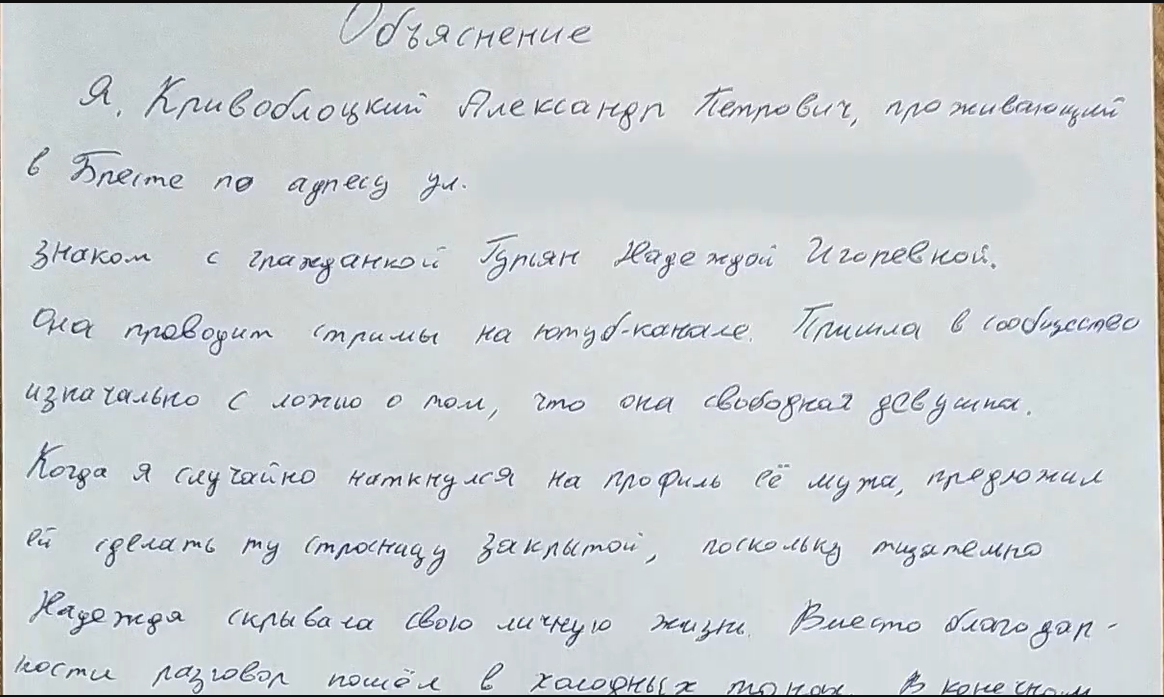 Объяснение
Я, Кривоблоцкий Александр Петрович, проживающий
в Бресте по адресу ул.
знаком с гражданкой Гурьян Надеждой Игоревной.
Она проводит стримы на ютуб-канале. Пришла в сообщество
изначально с ложью о том, что она свободная девушка.
Когда я случайно наткнулся на профиль её мужа, предложил
ей сделать ту страницу закрытой, поскольку тщательно
Надежда скрывала свою личную жизнь. Вместо благодар-
ности разговор пошёл в холодных тонах. В конечном